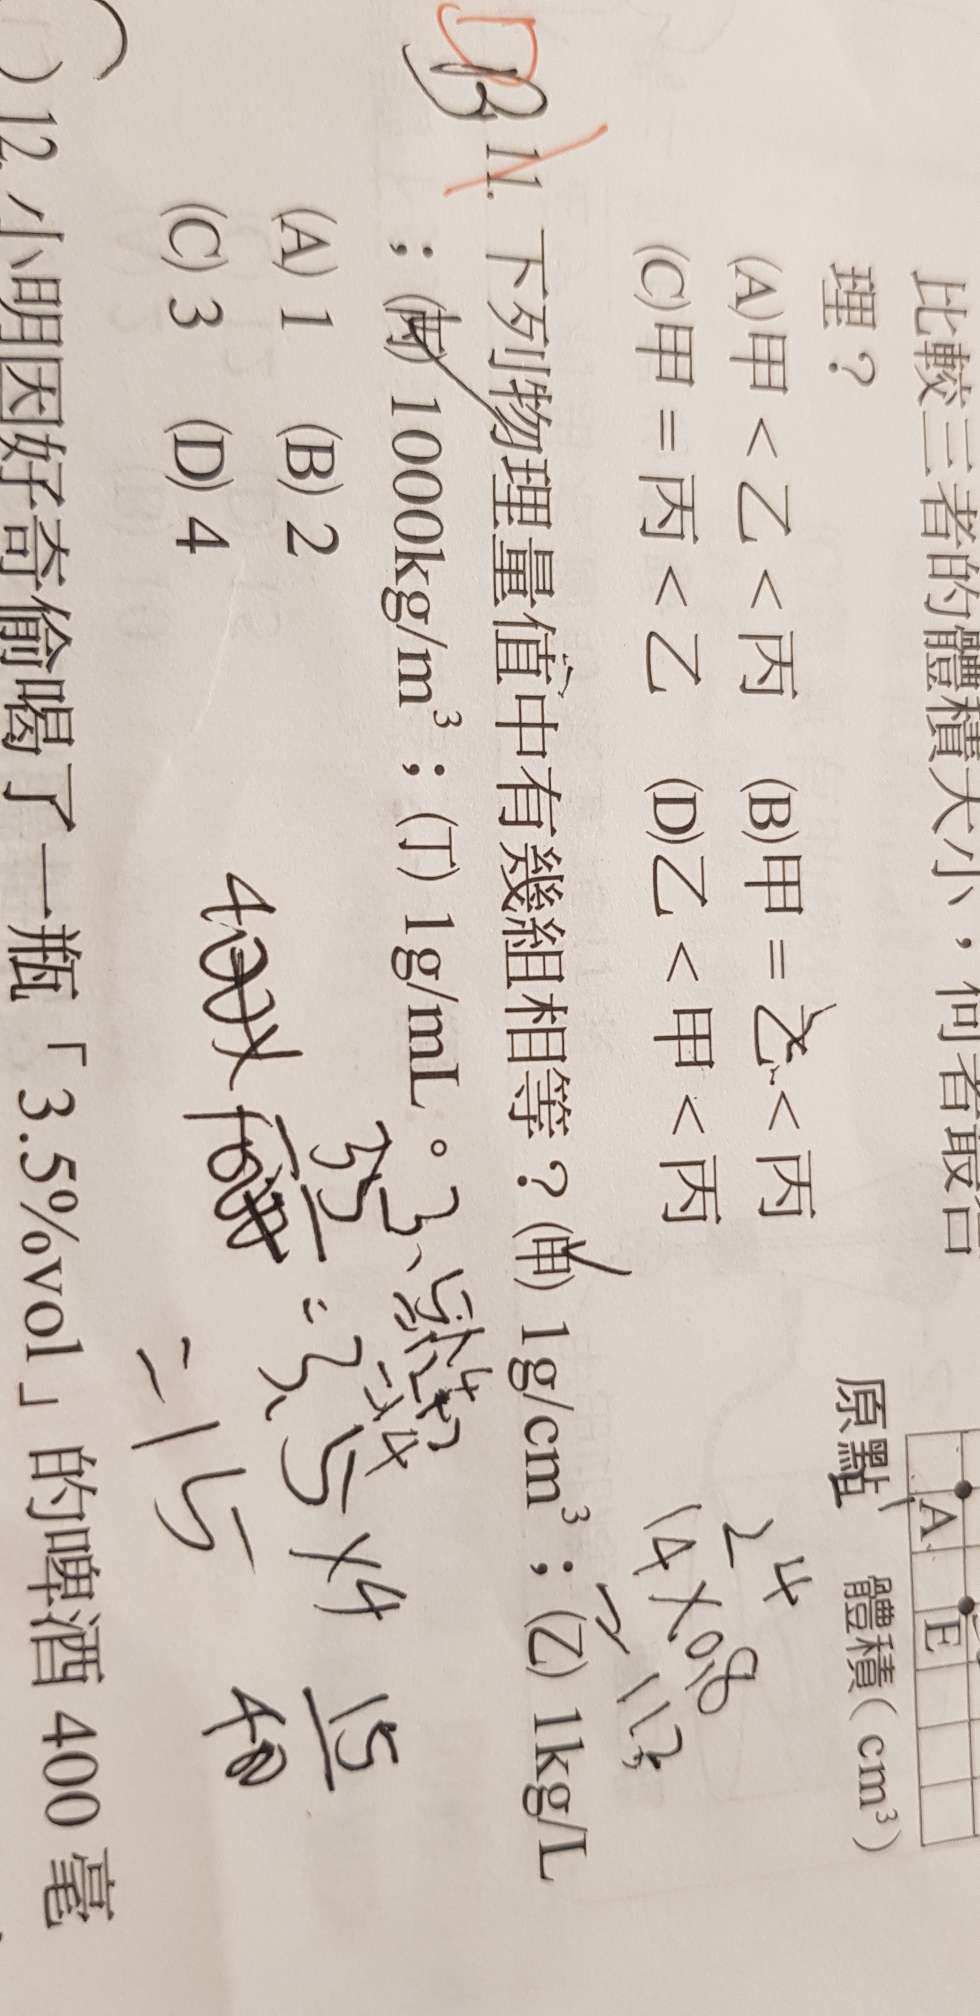 比較三者的體積大小，何者最合
理？
(A)甲＜乙＜丙 (B)甲＝乙＜丙
(C)甲＝丙＜乙 (D)乙＜甲＜丙
A
E
原點 體積(cm³)
24
14×0.8
D
B 11. 下列物理量值中有幾組相等？(甲) 1g/cm³；(乙) 1kg/L
；(丙) 1000kg/m³；(丁) 1g/mL。
(A) 1 (B) 2
(C) 3 (D) 4
3.5×4
15
) 12. 小明因好奇偷喝了一瓶「3.5%vol」的啤酒 400 毫